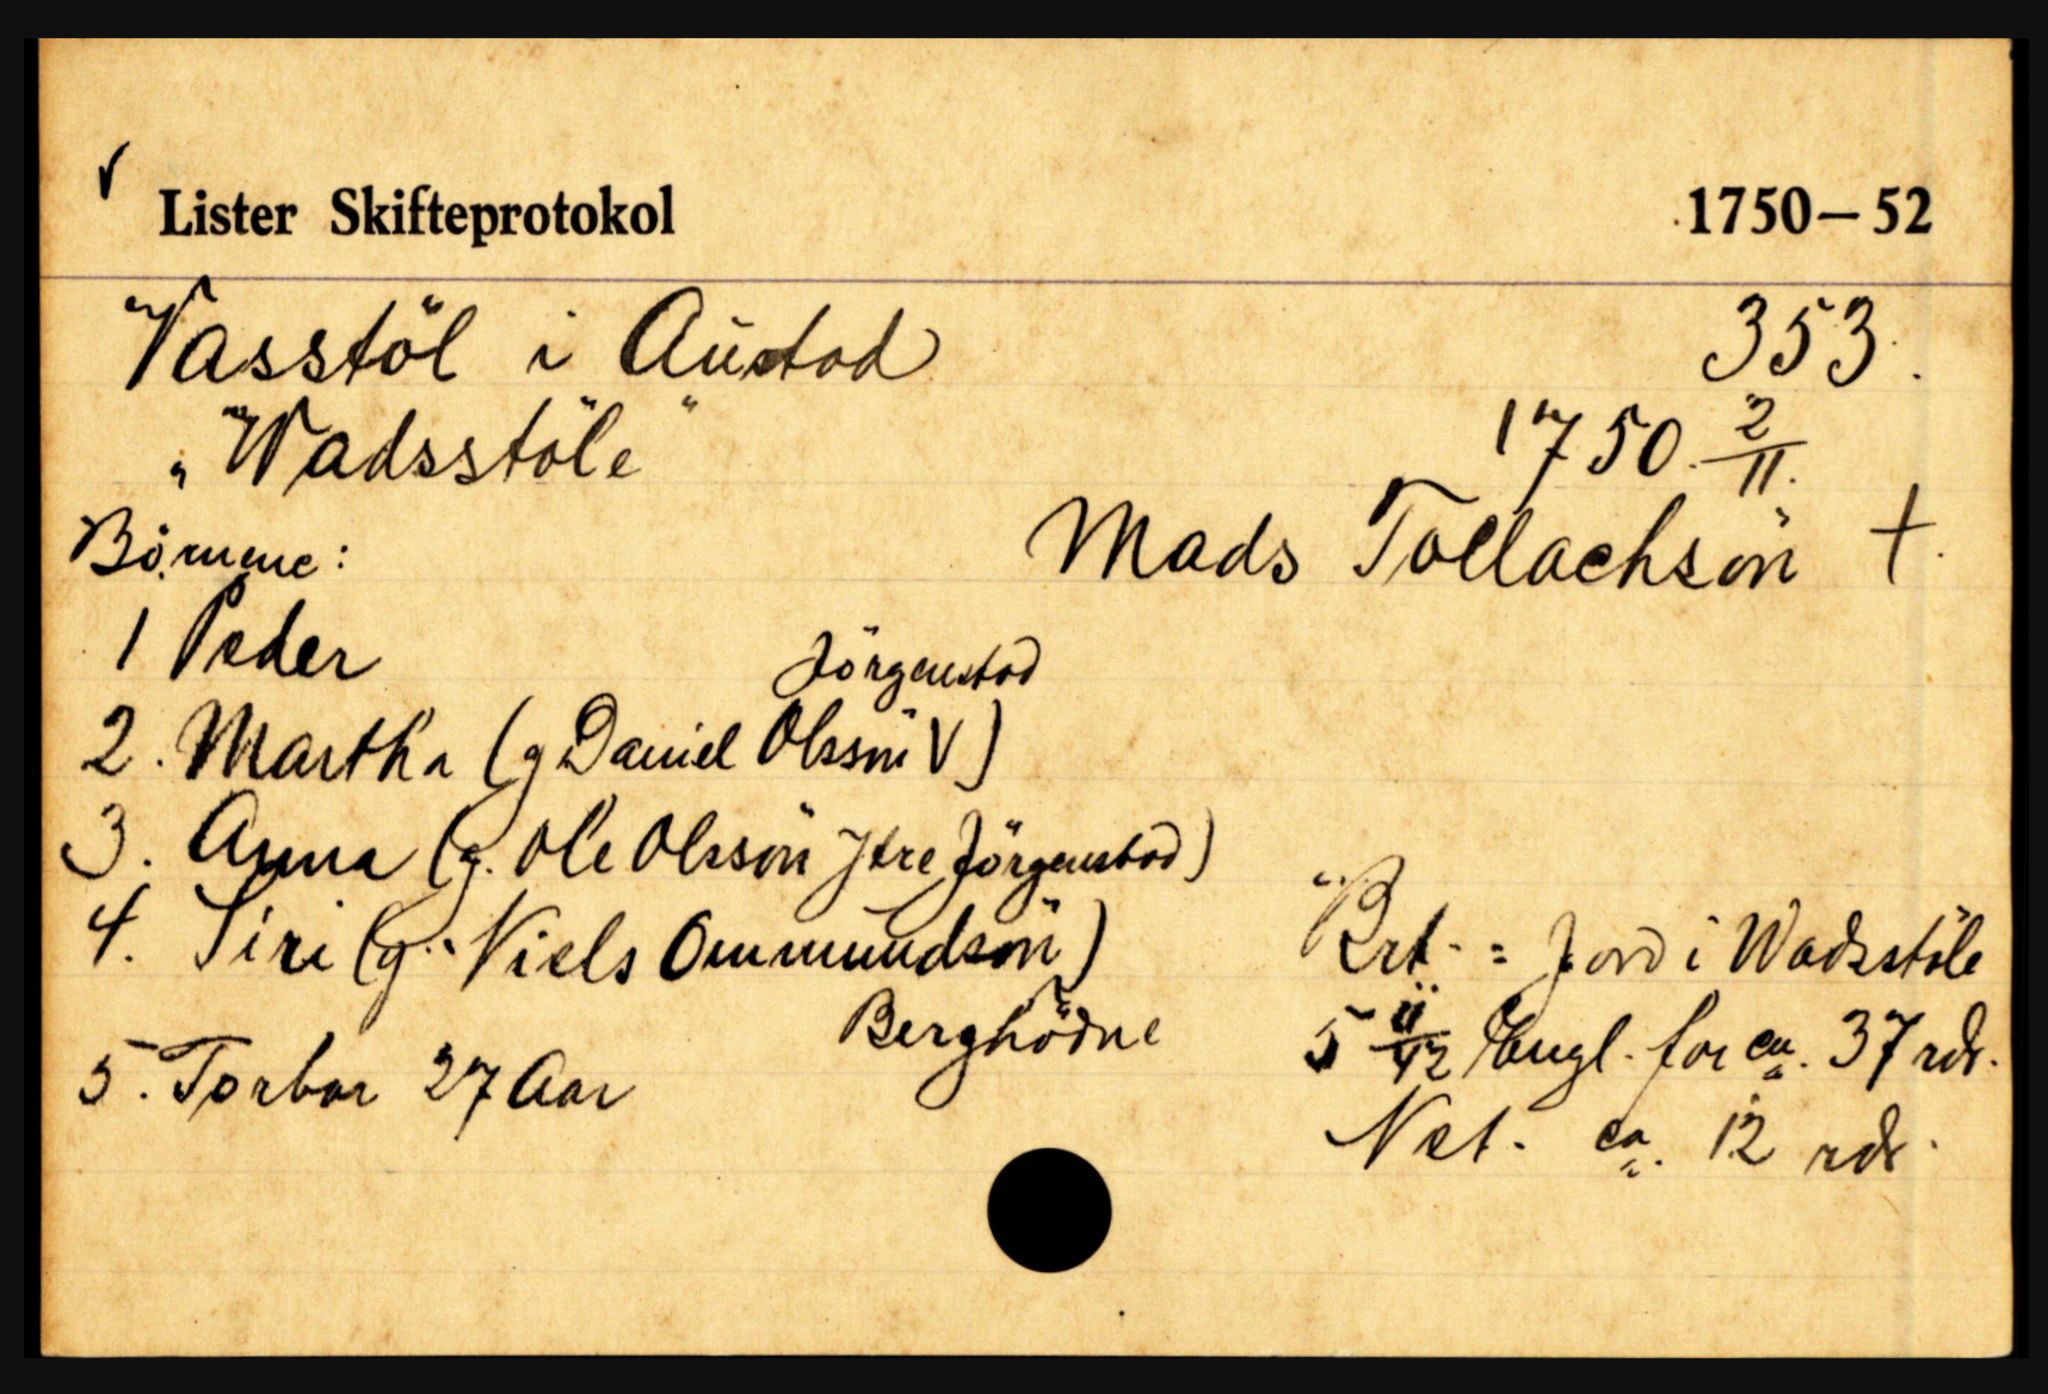 √ Lister Skifteprotokol 1750–52
Vasstöl i Austad 353.
„Wadsstöle" 1750. 2/11.
Mads Tollachsön †.
Börnene:
1 Peder
Jörgenstad
2. Martha (g Daniel Olssön V)
3. Anna (g. Ole Olssön Ytre Jörgenstad)
4. Siri (g. Niels Ommundsön)
Berghödne
5. Torbor 27 Aar
Brt. = Jord i Wadsstöle
5 11/12 Engl. for ca. 37 rdr.
Net. ca. 12 rdr.